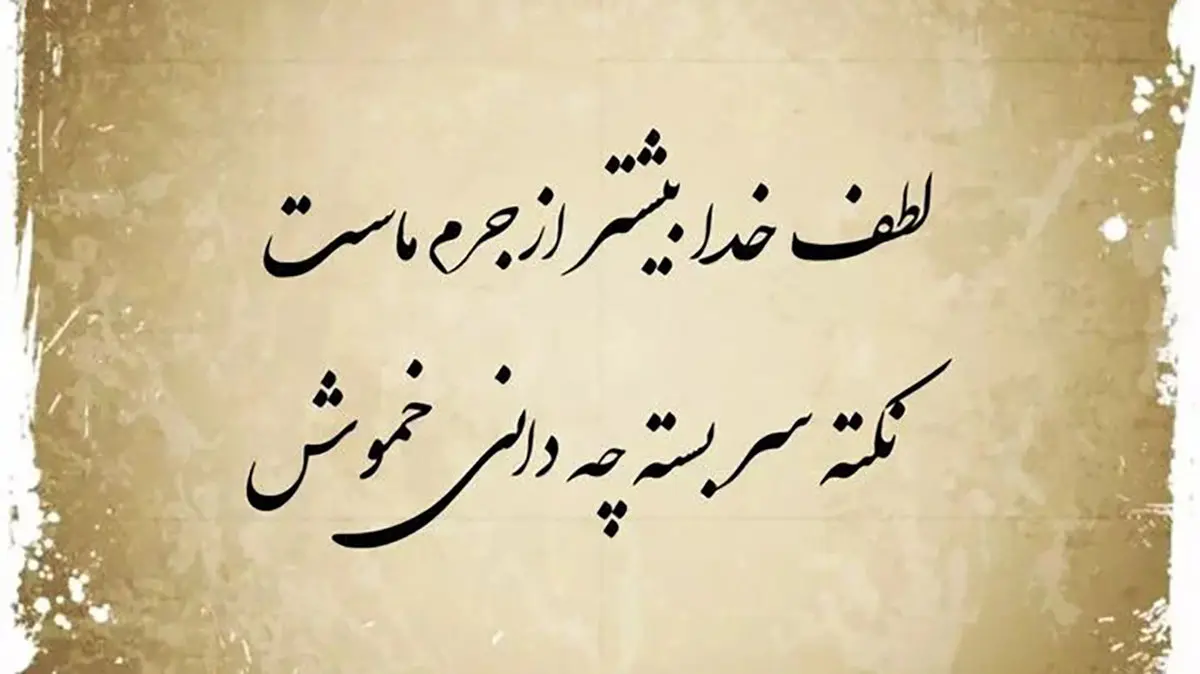 لطف خدا بیشتر از جرم ماست
نکته سر بسته چه دانی خموش